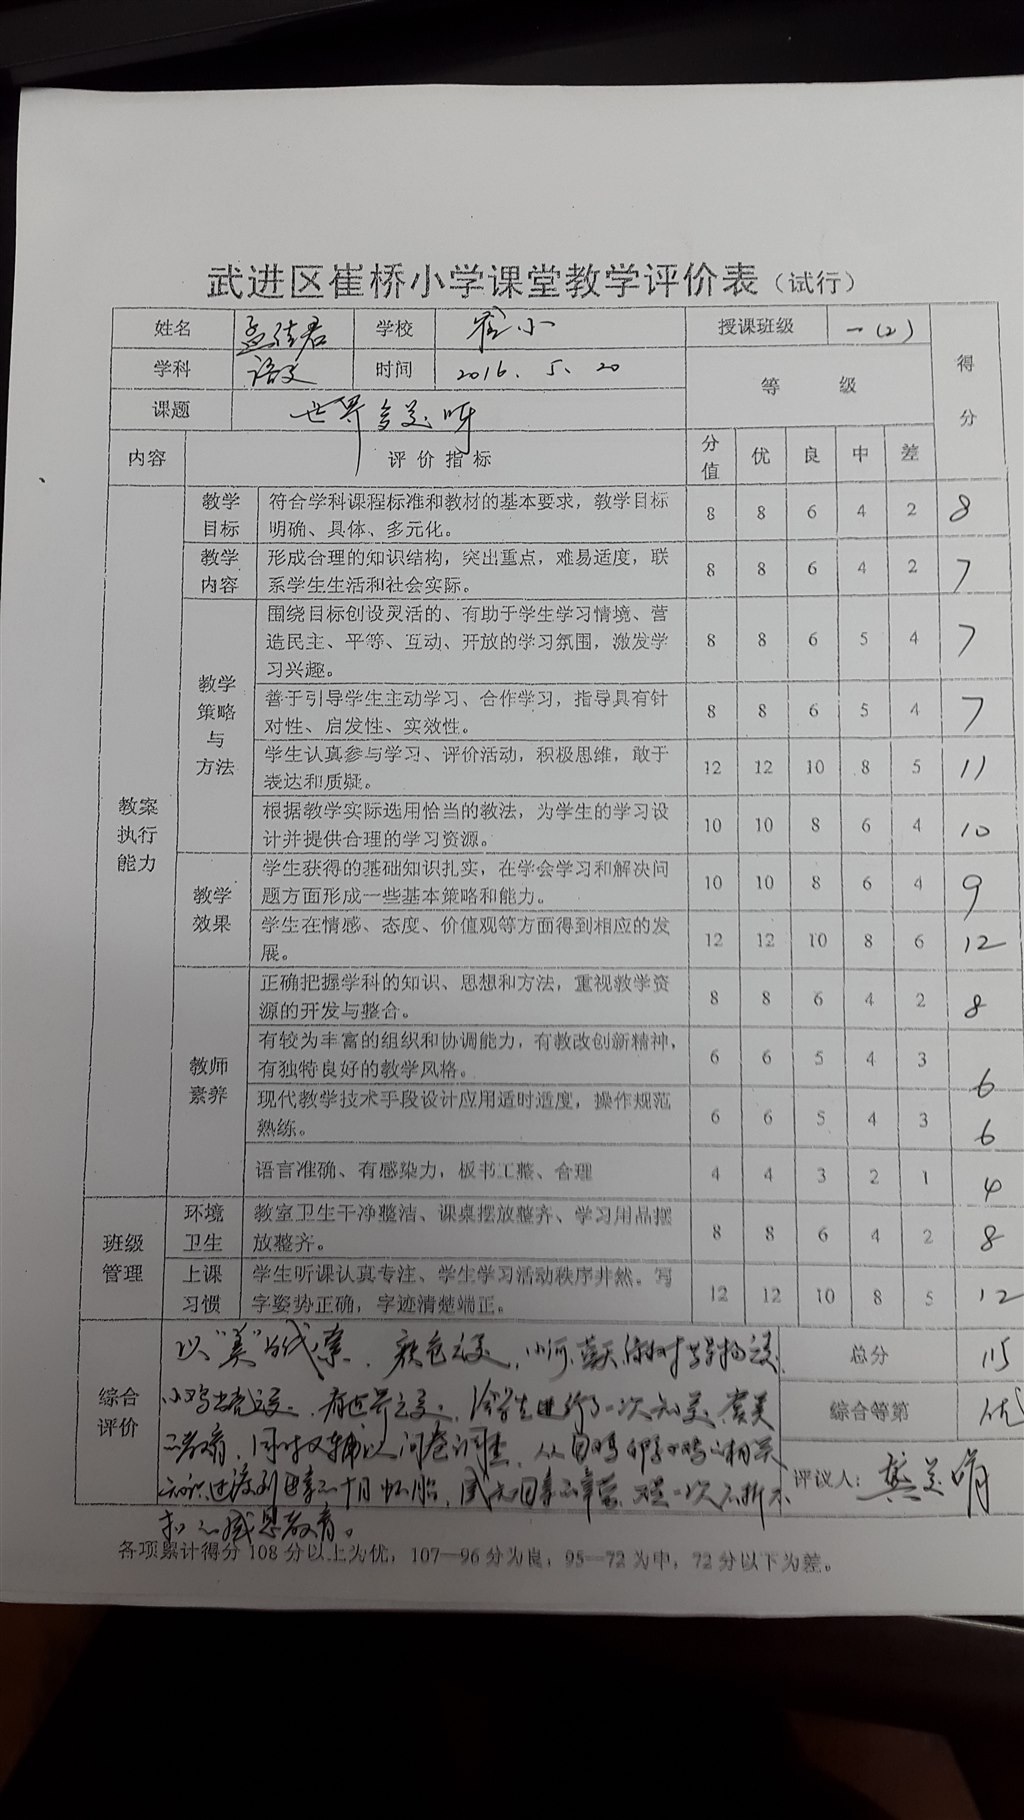 武进区崔桥小学课堂教学评价表（试行）
姓名 孟佳君 学校 崔小 授课班级 一（2） 得分
学科 语文 时间 2016.5.20 等级
课题 世界多美呀
内容 评价指标 分值 优 良 中 差
教案执行能力
教学目标 符合学科课程标准和教材的基本要求，教学目标
明确、具体、多元化。 8 8 6 4 2 8
教学内容 形成合理的知识结构，突出重点，难易适度，联
系学生生活和社会实际。 8 8 6 4 2 7
教学策略与方法
围绕目标创设灵活的、有助于学生学习情境、营
造民主、平等、互动、开放的学习氛围，激发学
习兴趣。 8 8 6 5 4 7
善于引导学生主动学习、合作学习，指导具有针
对性、启发性、实效性。 8 8 6 5 4 7
学生认真参与学习、评价活动，积极思维，敢于
表达和质疑。 12 12 10 8 5 11
根据教学实际选用恰当的教法，为学生的学习设
计并提供合理的学习资源。 10 10 8 6 4 10
教学效果
学生获得的基础知识扎实，在学会学习和解决问
题方面形成一些基本策略和能力。 10 10 8 6 4 9
学生在情感、态度、价值观等方面得到相应的发
展。 12 12 10 8 6 12
教师素养
正确把握学科的知识、思想和方法，重视教学资
源的开发与整合。 8 8 6 4 2 8
有较为丰富的组织和协调能力，有教改创新精神，
有独特良好的教学风格。 6 6 5 4 3 6
现代教学技术手段设计应用适时适度，操作规范
熟练。 6 6 5 4 3 6
语言准确、有感染力，板书工整、合理 4 4 3 2 1 4
班级管理
环境卫生 教室卫生干净整洁、课桌摆放整齐、学习用品摆
放整齐。 8 8 6 4 2 8
上课习惯 学生听课认真专注、学生学习活动秩序井然。写
字姿势正确，字迹清楚端正。 12 12 10 8 5 12
综合评价
以“美”为线索，颜色之美，小河、蓝天、绿树
小鸡 看世界之美，给学生进行了一次知美、赏美
之教育，同时又辅以问卷调查，从母鸡
过渡到母亲 十月怀胎，
感恩教育。
总分 115
综合等第 优
评议人：龚美娟
各项累计得分 108 分以上为优，107—96 分为良，95—72 为中，72 分以下为差。